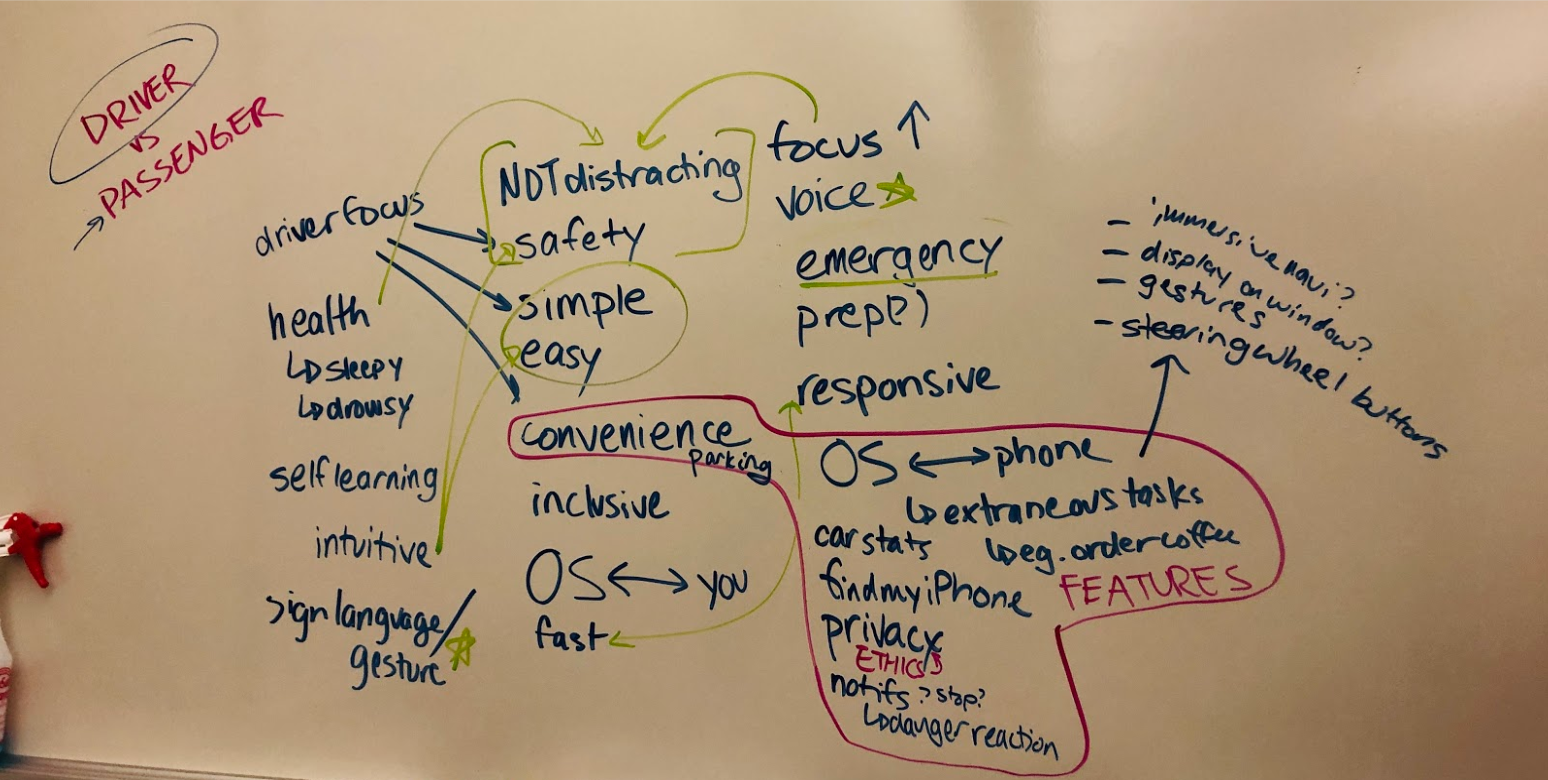 DRIVER
vs
PASSENGER
driver focus
health
sleepy
drowsy
self learning
intuitive
sign language/
gesture
NOT distracting
safety
simple
easy
convenience
parking
inclusive
OS ↔ you
fast
focus ↑
voice
emergency
prep(?)
responsive
OS ↔ phone
extraneous tasks
eg. order coffee
car stats
find my iPhone
FEATURES
privacy
ETHICS
notifs ? stop?
danger reaction
- immersive navi?
- display on window?
- gestures
- steering wheel buttons